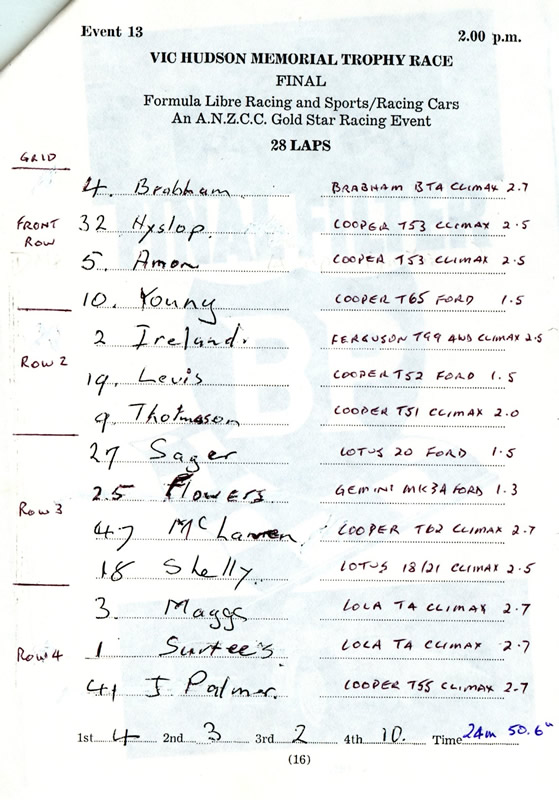 Event 13 2.00 p.m.
VIC HUDSON MEMORIAL TROPHY RACE
FINAL
Formula Libre Racing and Sports/Racing Cars
An A.N.Z.C.C. Gold Star Racing Event
28 LAPS
GRID
4. Brabham BRABHAM BTA CLIMAX 2.7
FRONT ROW 32 Hyslop. COOPER T53 CLIMAX 2.5
5. Amon COOPER T53 CLIMAX 2.5
10. Young COOPER T65 FORD 1.5
2 Ireland. FERGUSON T99 4WD CLIMAX 2.5
Row 2 19. Levis COOPER T52 FORD 1.5
9. Thomasson COOPER T51 CLIMAX 2.0
27 Sager LOTUS 20 FORD 1.5
Row 3 25 Flowers GEMINI MK3A FORD 1.3
47 McLaren COOPER T62 CLIMAX 2.7
18 Shelly. LOTUS 18/21 CLIMAX 2.5
3. Maggs LOLA T4 CLIMAX 2.7
Row 4 1 Surtees. LOLA T4 CLIMAX 2.7
41 J Palmer. COOPER T55 CLIMAX 2.7
1st 4 2nd 3 3rd 2 4th 10. Time 24m 50.6s
(16)